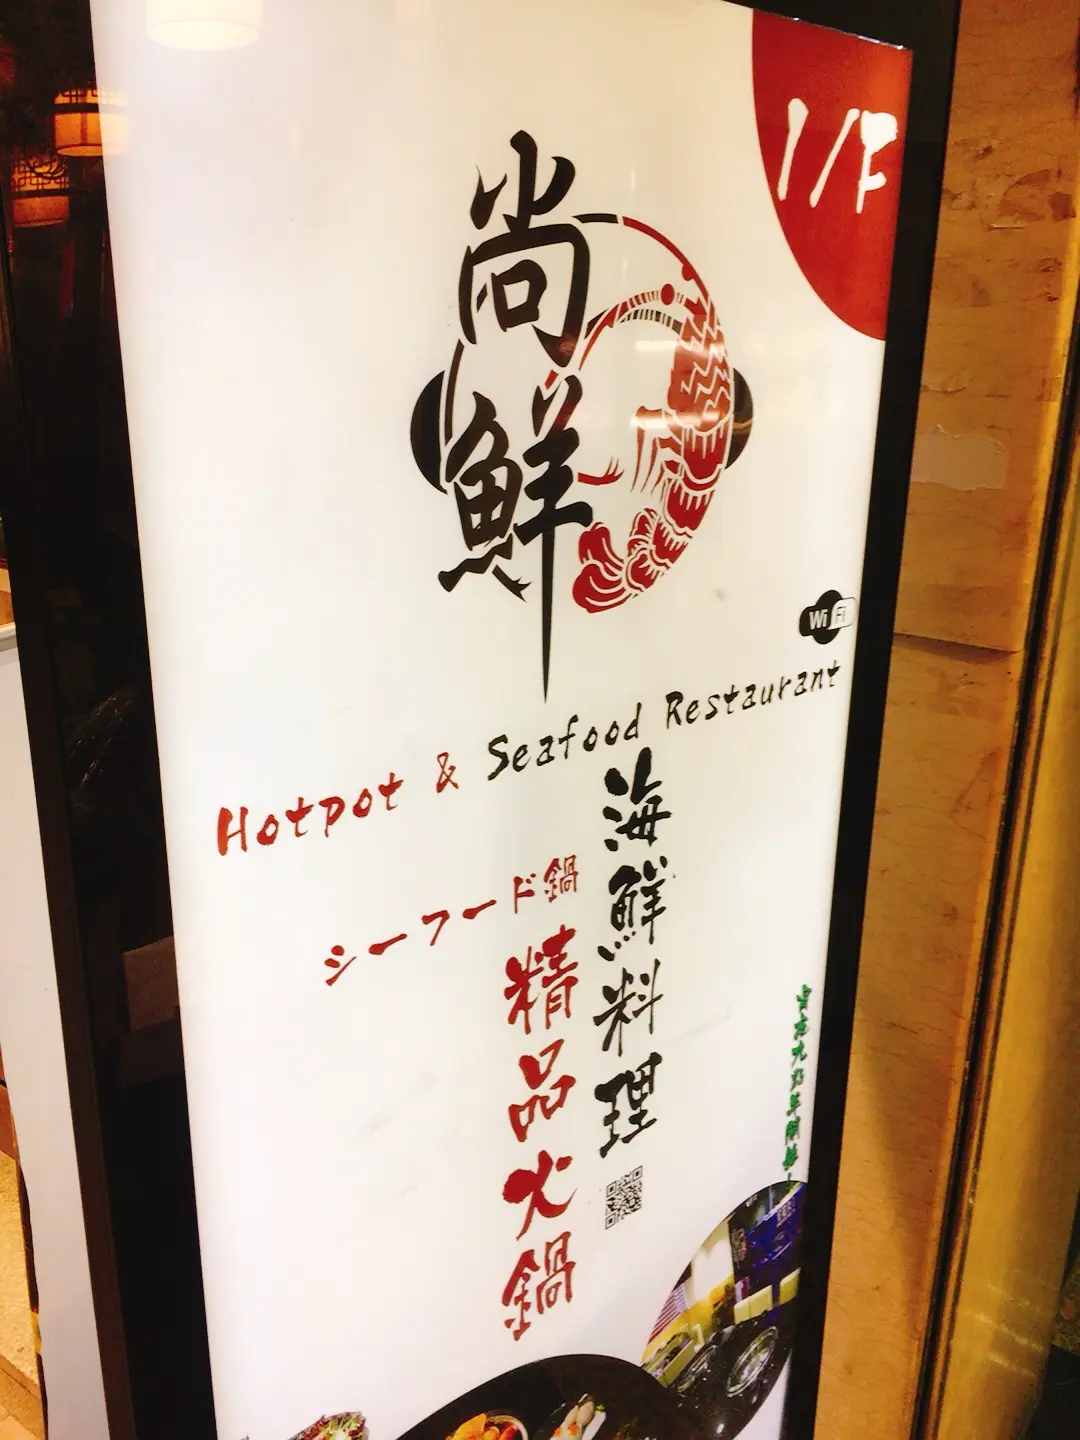 1/F
尚鮮
WiFi
Hotpot & Seafood Restaurant
海鮮料理
シーフード鍋
精品火鍋